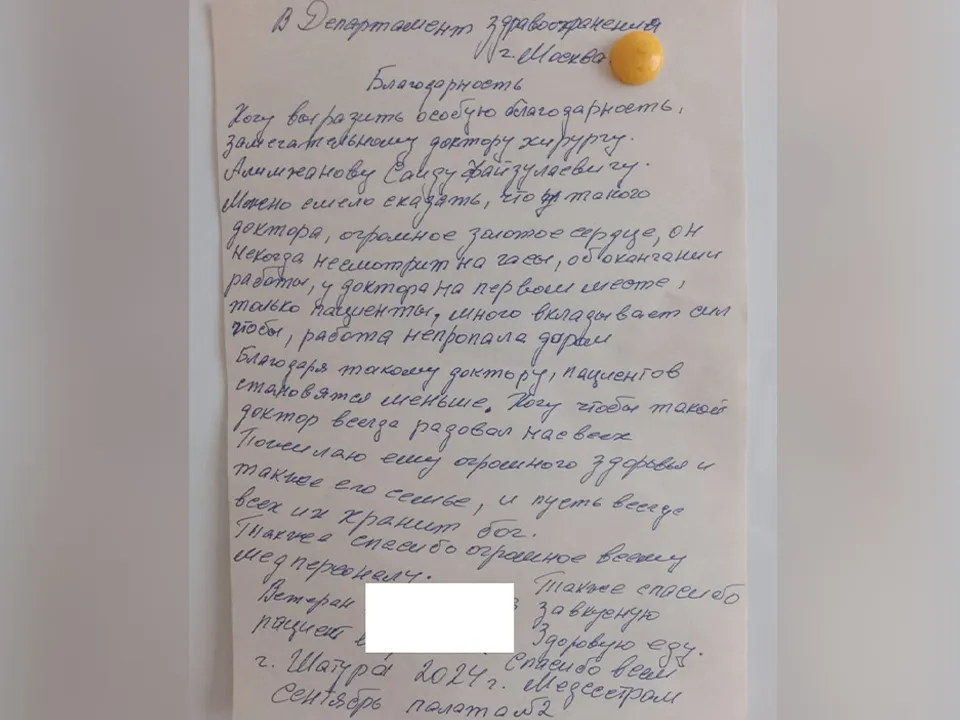 В Департамент здравоохранения
г. Москва.
Благодарность
Хочу выразить особую благодарность,
замечательному доктору хирургу.
Алимжанову Саиду Файзулаевичу.
Можно смело сказать, что у такого
доктора, огромное золотое сердце, он
некогда несмотрит на часы, об окончании
работы, у доктора на первом месте,
только пациенты, много вкладывает сил
чтобы, работа непропала даром
Благодаря такому доктору, пациентов
становятся меньше. Хочу чтобы такой
доктор всегда радовал нас всех
Пожилаю ему огромного здоровья и
также его семье, и пусть всегда
всех их хранит бог.
Также спасибо огромное всему
мед персоналу.
Ветеран
пациент
г. Шатура 2024 г.
Сентябрь палата №2
Также спасибо
за вкусную
Здоровую еду.
Спасибо всем
Медсестрам